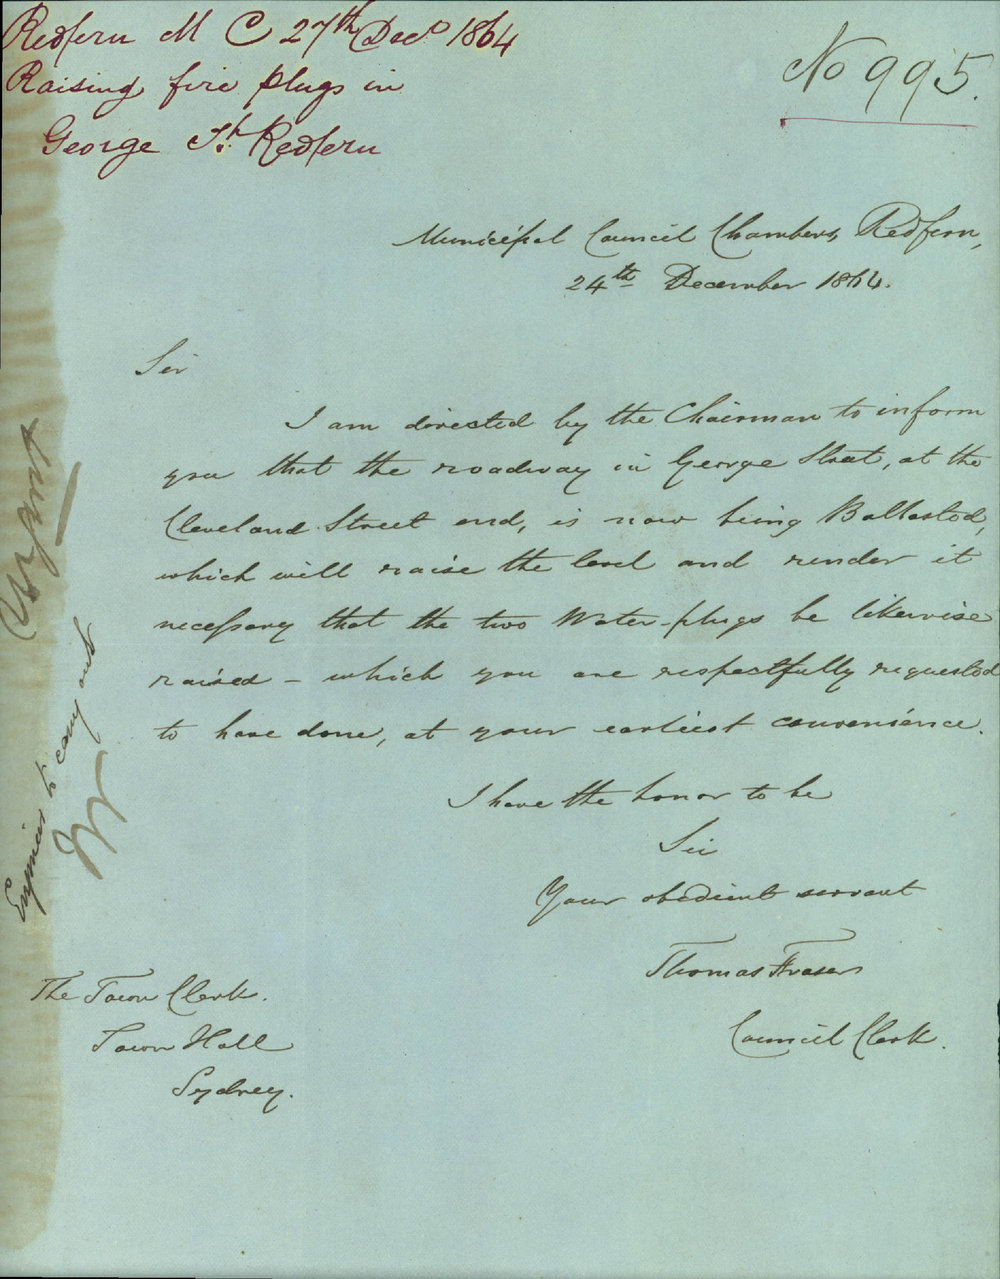 Redfern M C 27th Decr 1864
Raising fire plugs in
George St. Redfern
No 995.
Municipal Council Chambers, Redfern,
24th December 1864.
Sir
I am directed by the Chairman to inform
you that the roadway in George Street, at the
Cleveland Street end, is now being Ballasted,
which will raise the level and render it
necessary that the two Water-plugs be likewise
raised – which you are respectfully requested
to have done, at your earliest convenience.
I have the honor to be
Sir
Your obedient servant
Thomas Fraser
Council Clerk.
The Town Clerk.
Town Hall
Sydney.
Urgent
Engineer to carry out